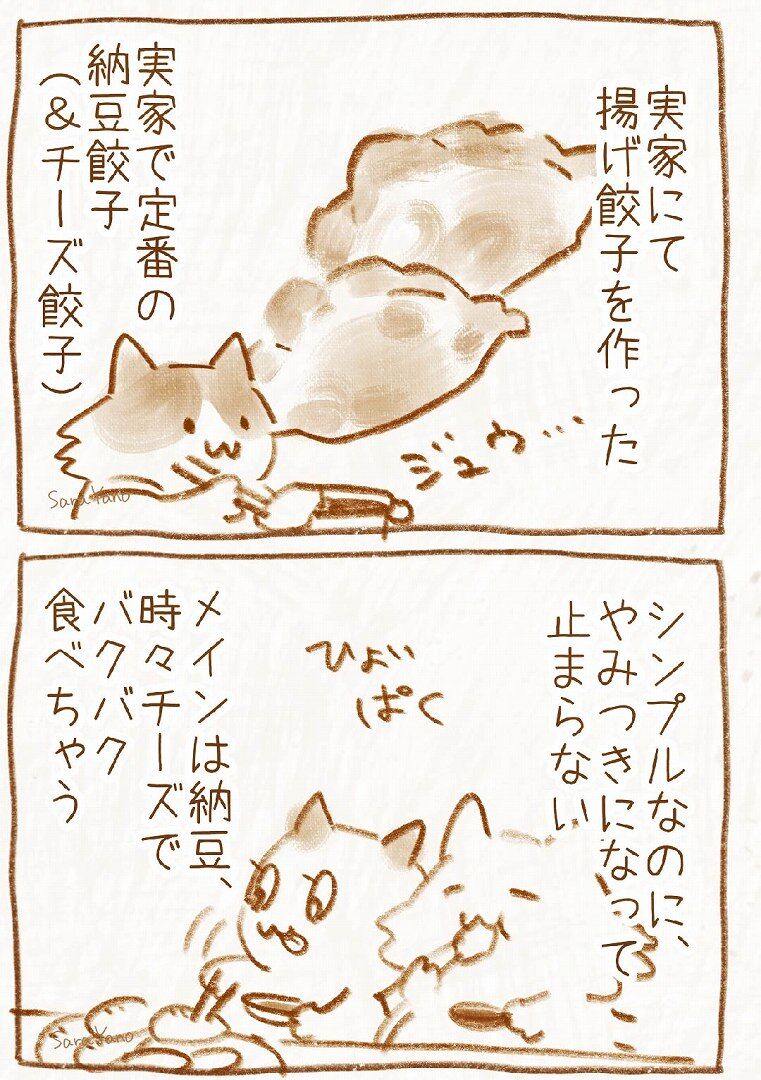 実家にて
揚げ餃子を作った
実家で定番の
納豆餃子
(&チーズ餃子)
ジュゥ…
Sara Yano
シンプルなのに、
やみつきになって
止まらない
ひょい
ぱく
メインは納豆、
時々チーズで
バクバク
食べちゃう
Sara Yano